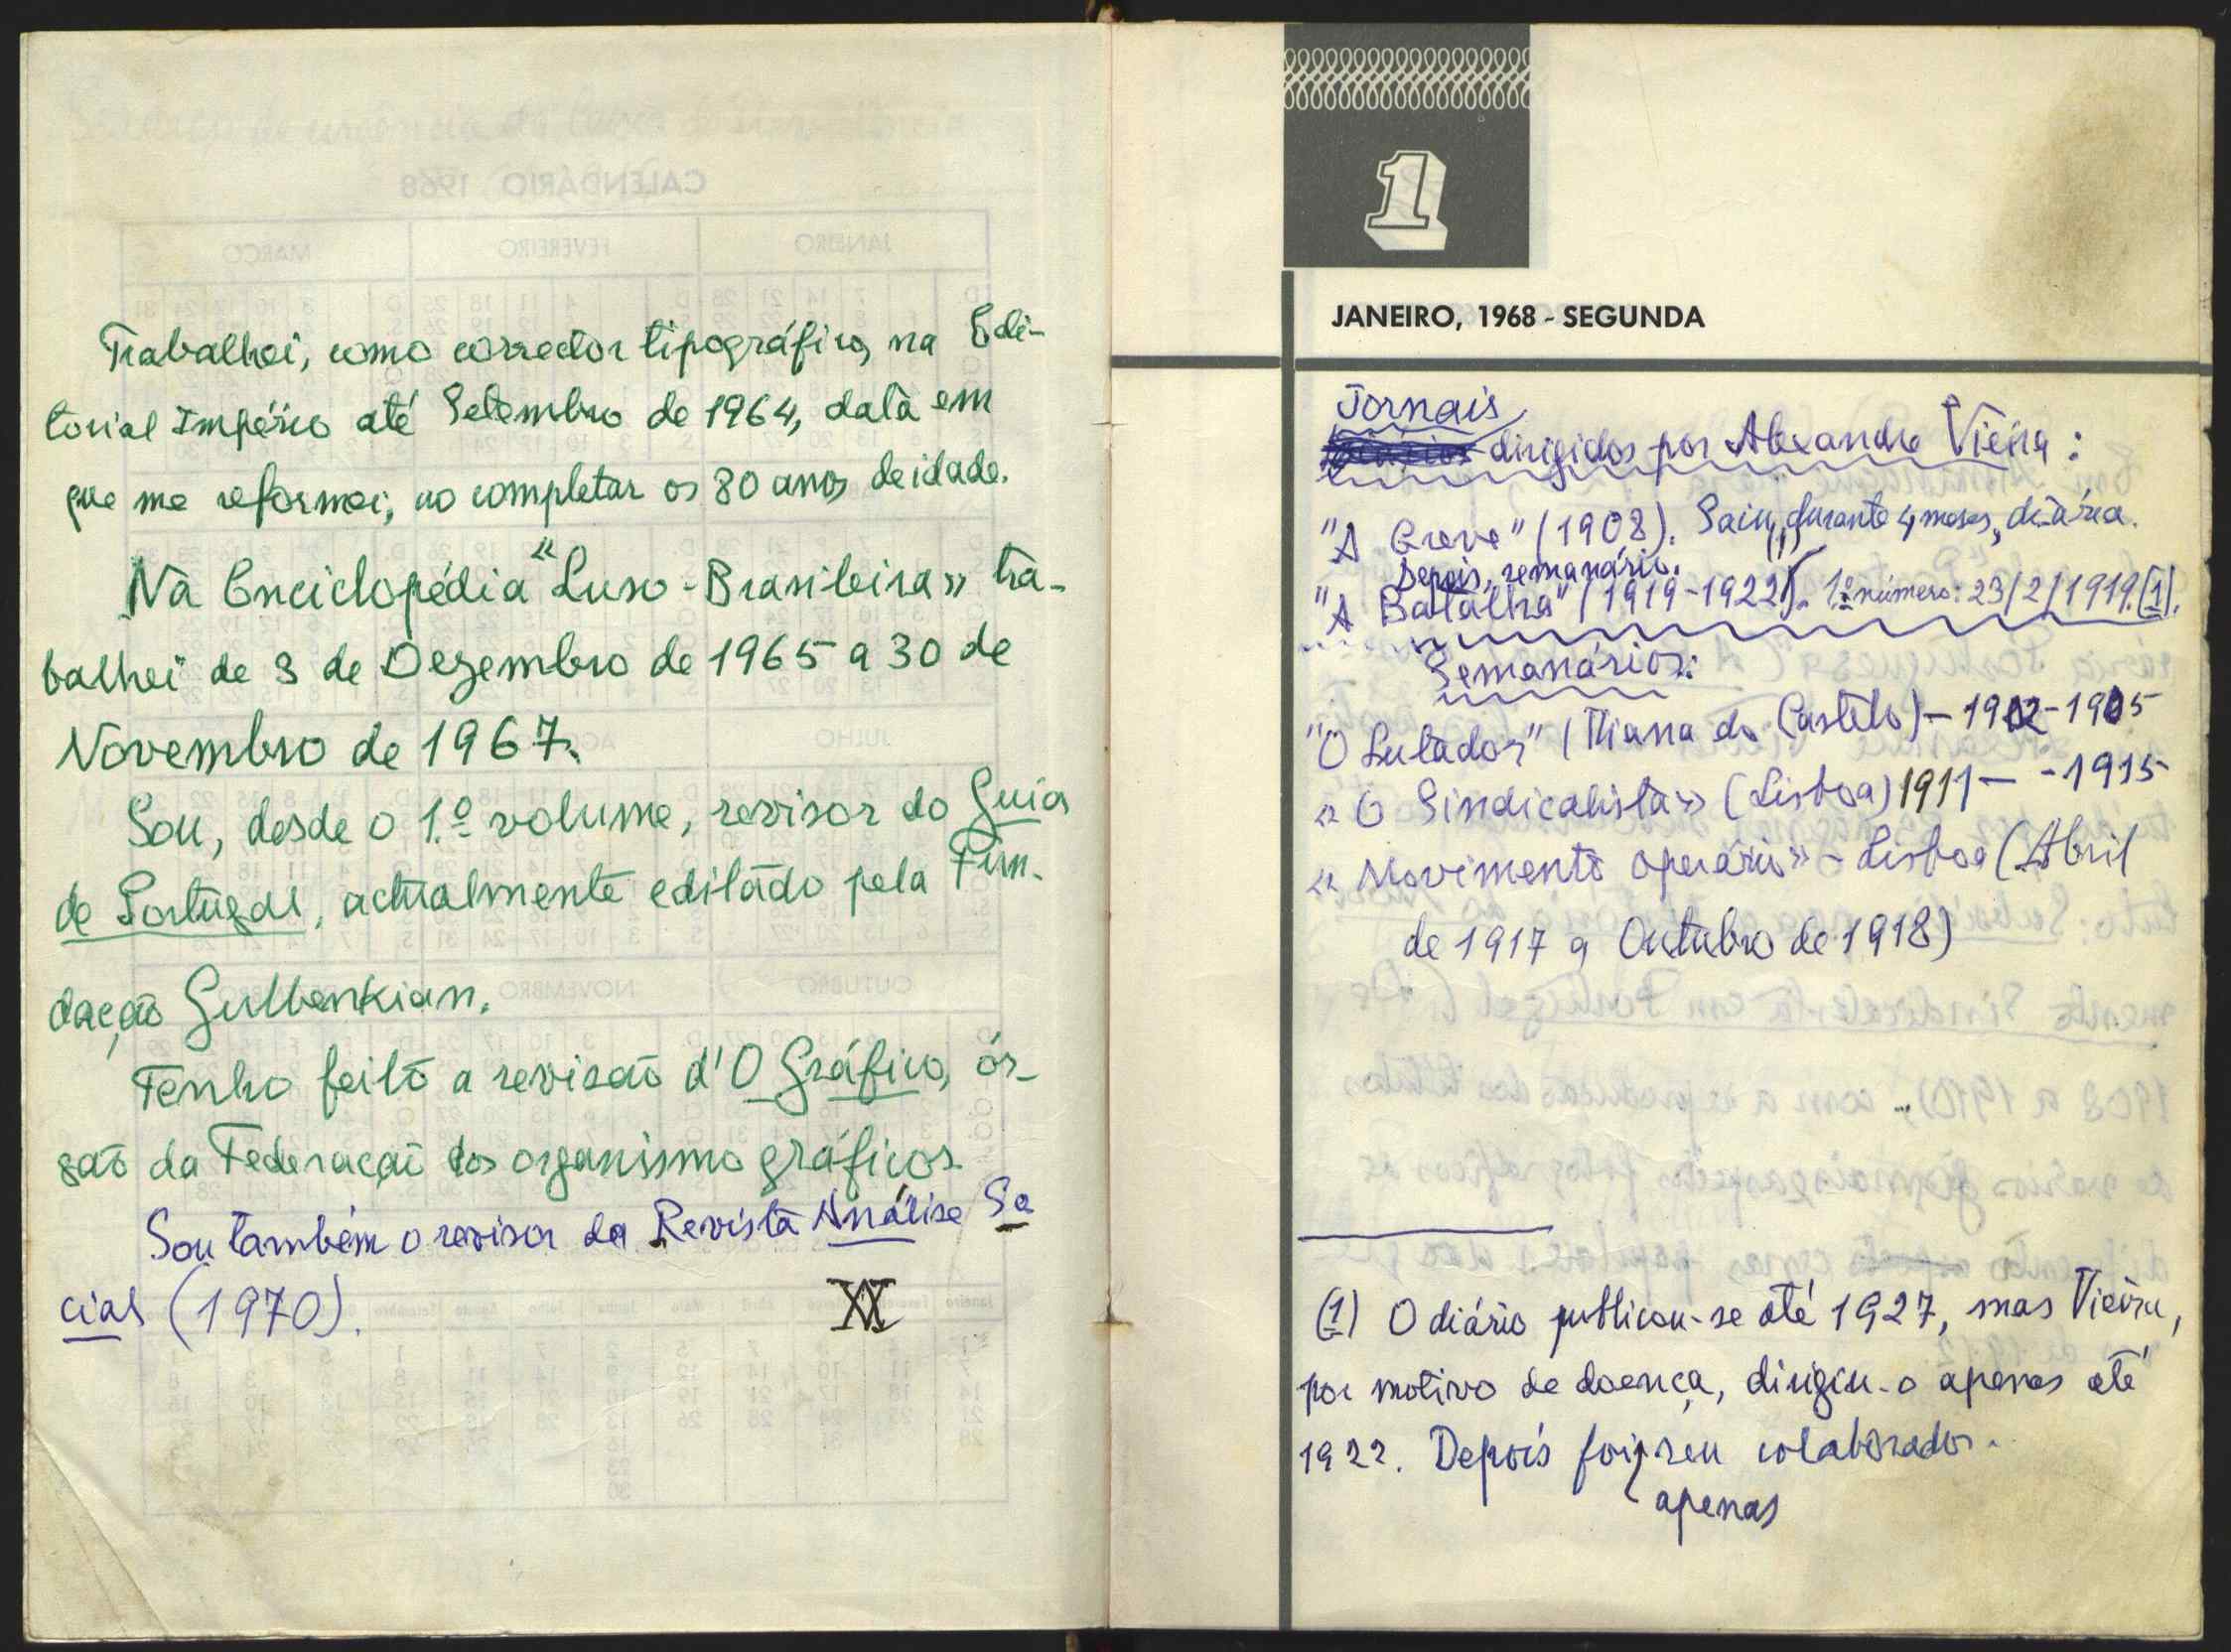 Trabalhei, como corrector tipográfico, na Edi-
torial Império até Setembro de 1964, data em
que me reformei, ao completar os 80 anos de idade.
Na Enciclopédia "Luso-Brasileira» tra-
balhei de 3 de Dezembro de 1965 a 30 de
Novembro de 1967.
Sou, desde o 1.º volume, revisor do Guia
de Portugal, actualmente editado pela Fun-
dação Gulbenkian.
Tenho feito a revisão d'O Gráfico, ór-
gão da Federação dos organismo gráficos.
Sou também o revisor da Revista Análise So
cial (1970).
1
JANEIRO, 1968 - SEGUNDA
Jornais
dirigidos por Alexandre Vieira:
"A Greve" (1908). Saiu, durante 4 meses, diária.
Depois, semanário.
"A Batalha" (1919-1922). 1.º número: 23/2/1919.(1).
Semanários:
"O Lutador" (Viana do Castelo) - 1902-1905
«O Sindicalista» (Lisboa) 1911 - - 1915
«Movimento Operário» - Lisboa (Abril
de 1917 a Outubro de 1918)
(1) O diário publicou-se até 1927, mas Vieira,
por motivo de doença, dirigiu-o apenas até
1922. Depois foi seu colaborador.
apenas